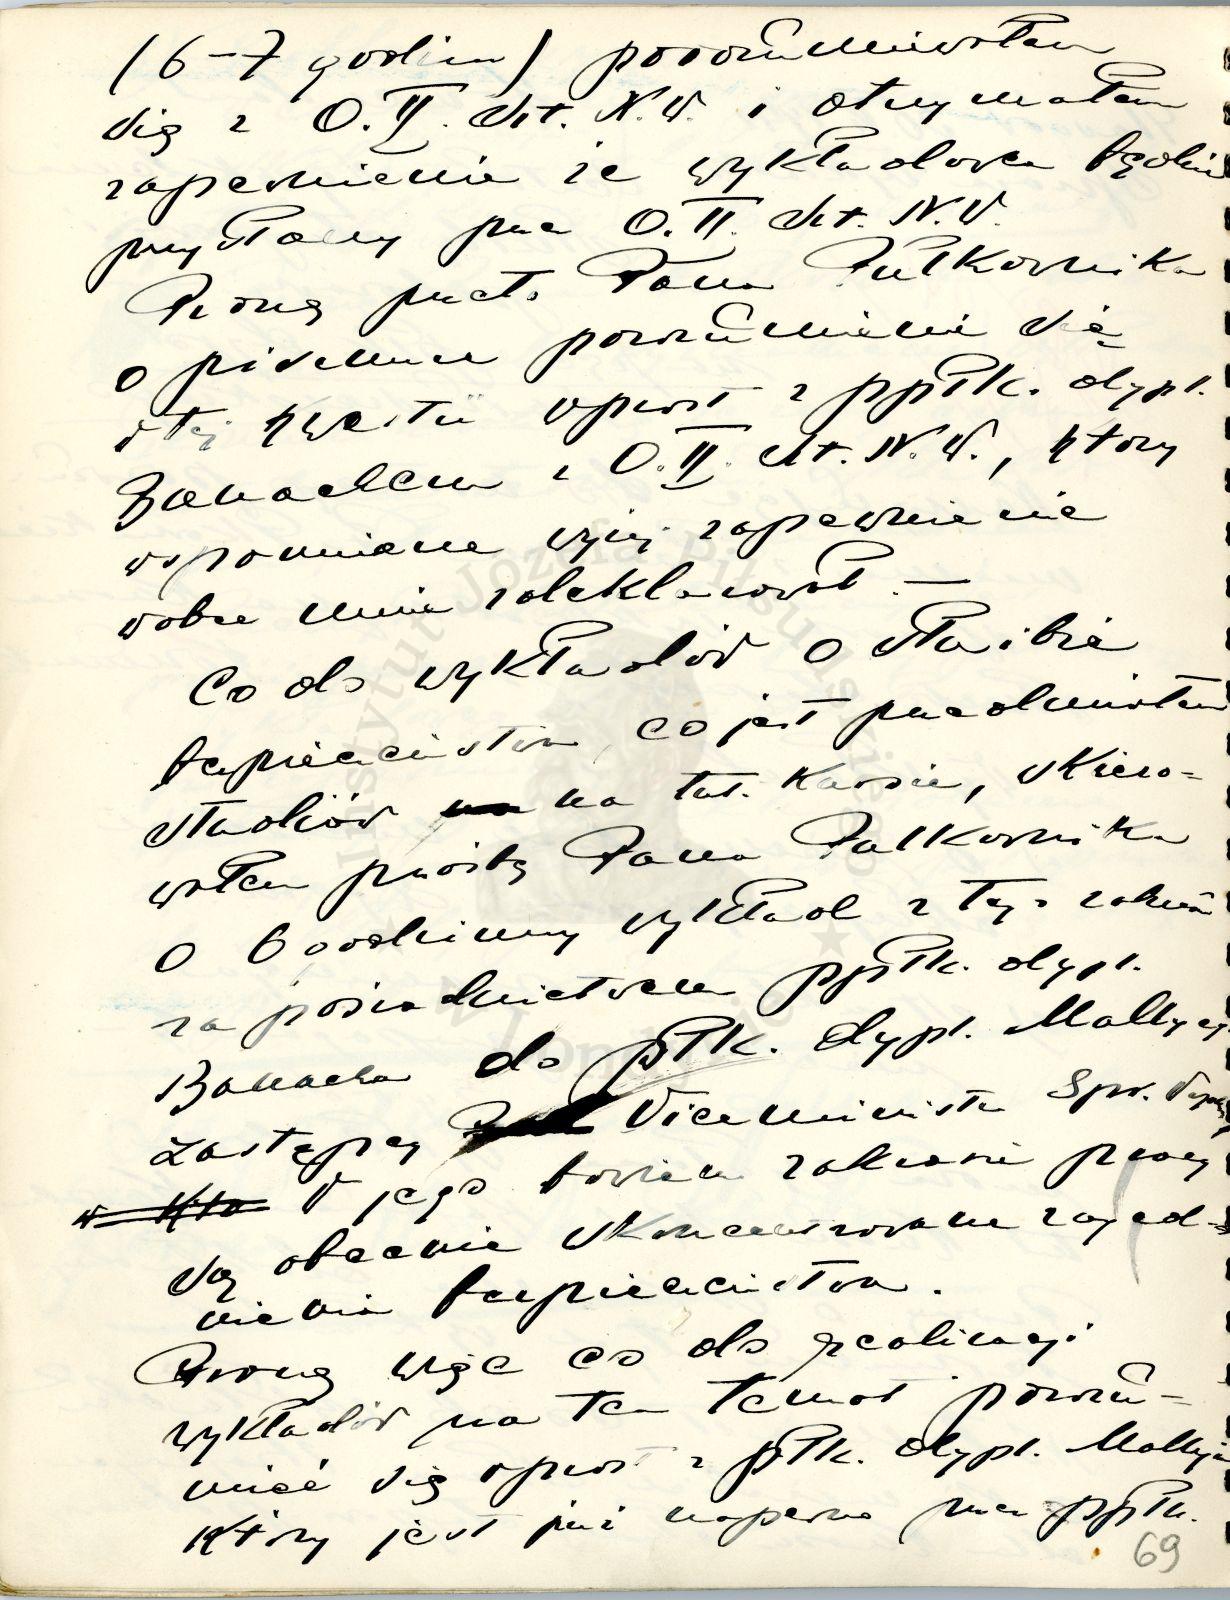 (6-7 godzin) porozumiewałem
się z O.II. Szt. N.W. i otrzymałem
zapewnienie że wykładowca będzie
przysłany przez O.II. Szt. N.W.
Proszę przeto Pana Pułkownika
o pisemne porozumienie się
w tej kwestii wprost z ppłk. dypl.
Banachem z O.II. Szt. N.W., który
wspomniane wyżej zapewnienie
wobec mnie zadeklarował. —
Co do wykładów o służbie
bezpieczeństwa, co jest przedmiotem
studiów na tut. Kursie, skiero-
wałem prośbę Pana Pułkownika
o 6 godzinny wykład z tego zakresu
za pośrednictwem ppłk. dypl.
Banacha do płk. dypl. Mally'ego
zastępcy Viceministra Spr. Wojsk.
W jego bowiem zakresie pracy
są obecnie skoncentrowane zagad-
nienia bezpieczeństwa.
Proszę więc co do realizacji
wykładów na ten temat porozu-
mieć się wprost z płk. dypl. Mally'm
który jest już napewno przez ppłk.
69
Instytut Józefa Piłsudskiego
w Londynie